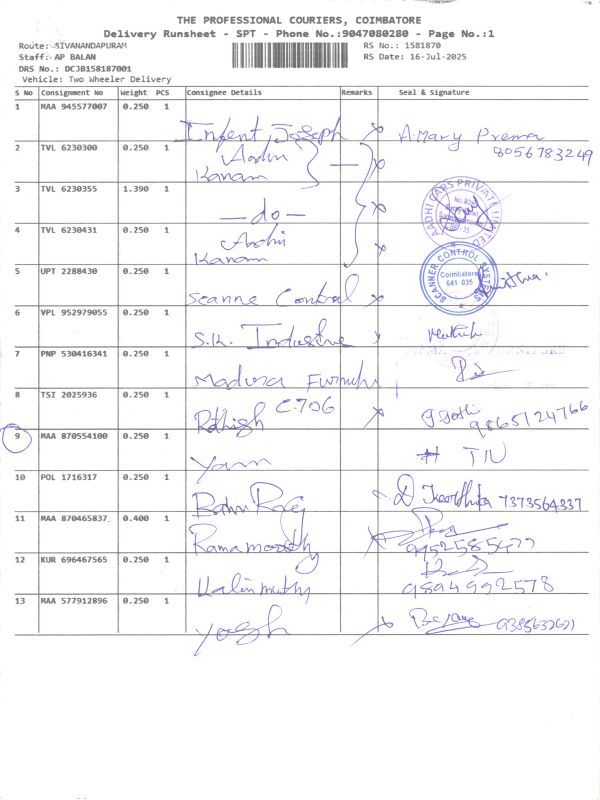 THE PROFESSIONAL COURIERS, COIMBATORE
Delivery Runsheet - SPT - Phone No.:9047080280 - Page No.:1
Route: SIVANANDAPURAM RS No.: 1581870
Staff: AP BALAN RS Date: 16-Jul-2025
DRS No.: DCJB158187001
Vehicle: Two Wheeler Delivery
S No Consignment No Weight PCS Consignee Details Remarks Seal & Signature
1 MAA 945577007 0.250 1 Infent Joseph A. Mary Prema
8056783249
2 TVL 6230300 0.250 1 Aadhi
Kanam
3 TVL 6230355 1.390 1 — do — AADHI CARS PRIVATE LIMITED
4 TVL 6230431 0.250 1 Aadhi
Kanam
5 UPT 2288430 0.250 1 Scanne Control SCANNER CONTROL SYSTEMS Coimbatore 641 035
6 VPL 952979055 0.250 1 S.K. Industrie
7 PNP 530416341 0.250 1 Madura Furnish
8 TSI 2025936 0.250 1 C-706 9865124766
9 MAA 870554100 0.250 1 Yann # TN
10 POL 1716317 0.250 1 Keerthika 7373564337
11 MAA 870465837 0.400 1 Ramamoorthy
12 KUR 696467565 0.250 1 Kalimuthu 9894992578
13 MAA 577912896 0.250 1 Yogsh